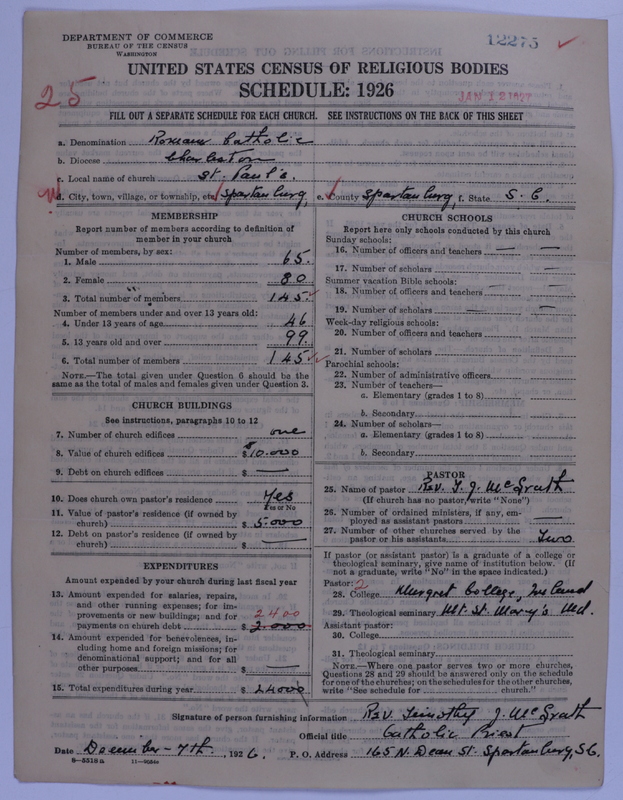 DEPARTMENT OF COMMERCE
BUREAU OF THE CENSUS
WASHINGTON
12275
UNITED STATES CENSUS OF RELIGIOUS BODIES
SCHEDULE: 1926
25
JAN 12 1927
FILL OUT A SEPARATE SCHEDULE FOR EACH CHURCH. SEE INSTRUCTIONS ON THE BACK OF THIS SHEET
a. Denomination Roman Catholic
b. Diocese Charleston
c. Local name of church St. Paul's
d. City, town, village, or township, etc. Spartanburg, e. County Spartanburg, f. State S. C.
MEMBERSHIP
Report number of members according to definition of
member in your church
Number of members, by sex:
1. Male 65.
2. Female 80
3. Total number of members 145.
Number of members under and over 13 years old:
4. Under 13 years of age 46
5. 13 years old and over 99.
6. Total number of members 145
NOTE.—The total given under Question 6 should be the
same as the total of males and females given under Question 3.
CHURCH BUILDINGS
See instructions, paragraphs 10 to 12
7. Number of church edifices one
8. Value of church edifices $10.000
9. Debt on church edifices $ —
10. Does church own pastor's residence Yes
Yes or No
11. Value of pastor's residence (if owned by
church) $ 5.000
12. Debt on pastor's residence (if owned by
church) $ —
EXPENDITURES
Amount expended by your church during last fiscal year
13. Amount expended for salaries, repairs,
and other running expenses; for im-
provements or new buildings; and for 2400
payments on church debt $ 2.000
14. Amount expended for benevolences, in-
cluding home and foreign missions; for
denominational support; and for all
other purposes $ —
15. Total expenditures during year $
CHURCH SCHOOLS
Report here only schools conducted by this church
Sunday schools:
16. Number of officers and teachers — —
17. Number of scholars — —
Summer vacation Bible schools:
18. Number of officers and teachers — —
19. Number of scholars — —
Week-day religious schools:
20. Number of officers and teachers
21. Number of scholars
Parochial schools:
22. Number of administrative officers
23. Number of teachers—
a. Elementary (grades 1 to 8)
b. Secondary
24. Number of scholars—
a. Elementary (grades 1 to 8)
b. Secondary
PASTOR
25. Name of pastor Rev. T. J. McGrath
(If church has no pastor, write "None")
26. Number of ordained ministers, if any, em-
ployed as assistant pastors —
27. Number of other churches served by the
pastor or his assistants Two
If pastor (or assistant pastor) is a graduate of a college or
theological seminary, give name of institution below. (If
not a graduate, write "No" in the space indicated.)
Pastor: 2
28. College Mungret College, Ireland
29. Theological seminary Mt. St. Mary's Md.
Assistant pastor:
30. College
31. Theological seminary
NOTE.—Where one pastor serves two or more churches,
Questions 28 and 29 should be answered only on the schedule
for one of the churches; on the schedules for the other churches,
write "See schedule for church."
Signature of person furnishing information Rev. Timothy J. McGrath
Official title Catholic Priest
Date December 7th, 1926. P. O. Address 165 N. Dean St. Spartanburg, S.C.